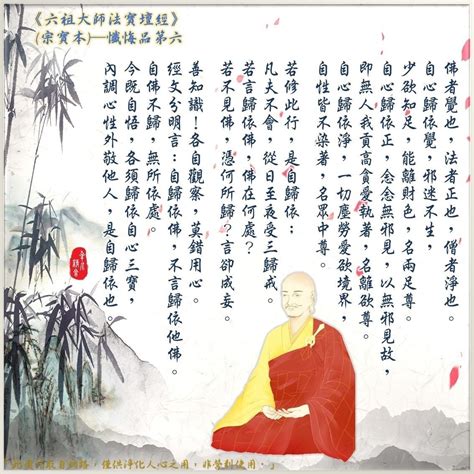 《六祖大師法寶壇經》
(宗寶本)—懺悔品第六
佛者覺也,法者正也,僧者淨也。
自心歸依覺,邪迷不生,
少欲知足,能離財色,名兩足尊。
自心歸依正,念念無邪見,以無邪見故,
即無人我貢高貪愛執著,名離欲尊。
自心歸依淨,一切塵勞愛欲境界,
自性皆不染著,名眾中尊。
若修此行,是自歸依:
凡夫不會,從日至夜受三歸戒。
若言歸依佛,佛在何處?
若不見佛,憑何所歸?言卻成妄。
善知識!各自觀察,莫錯用心。
經文分明言:自歸依佛,不言歸依他佛。
自佛不歸,無所依處。
今既自悟,各須歸依自心三寶,
內調心性外敬他人,是自歸依也。
僅供淨化人心之用,非營利使用。」